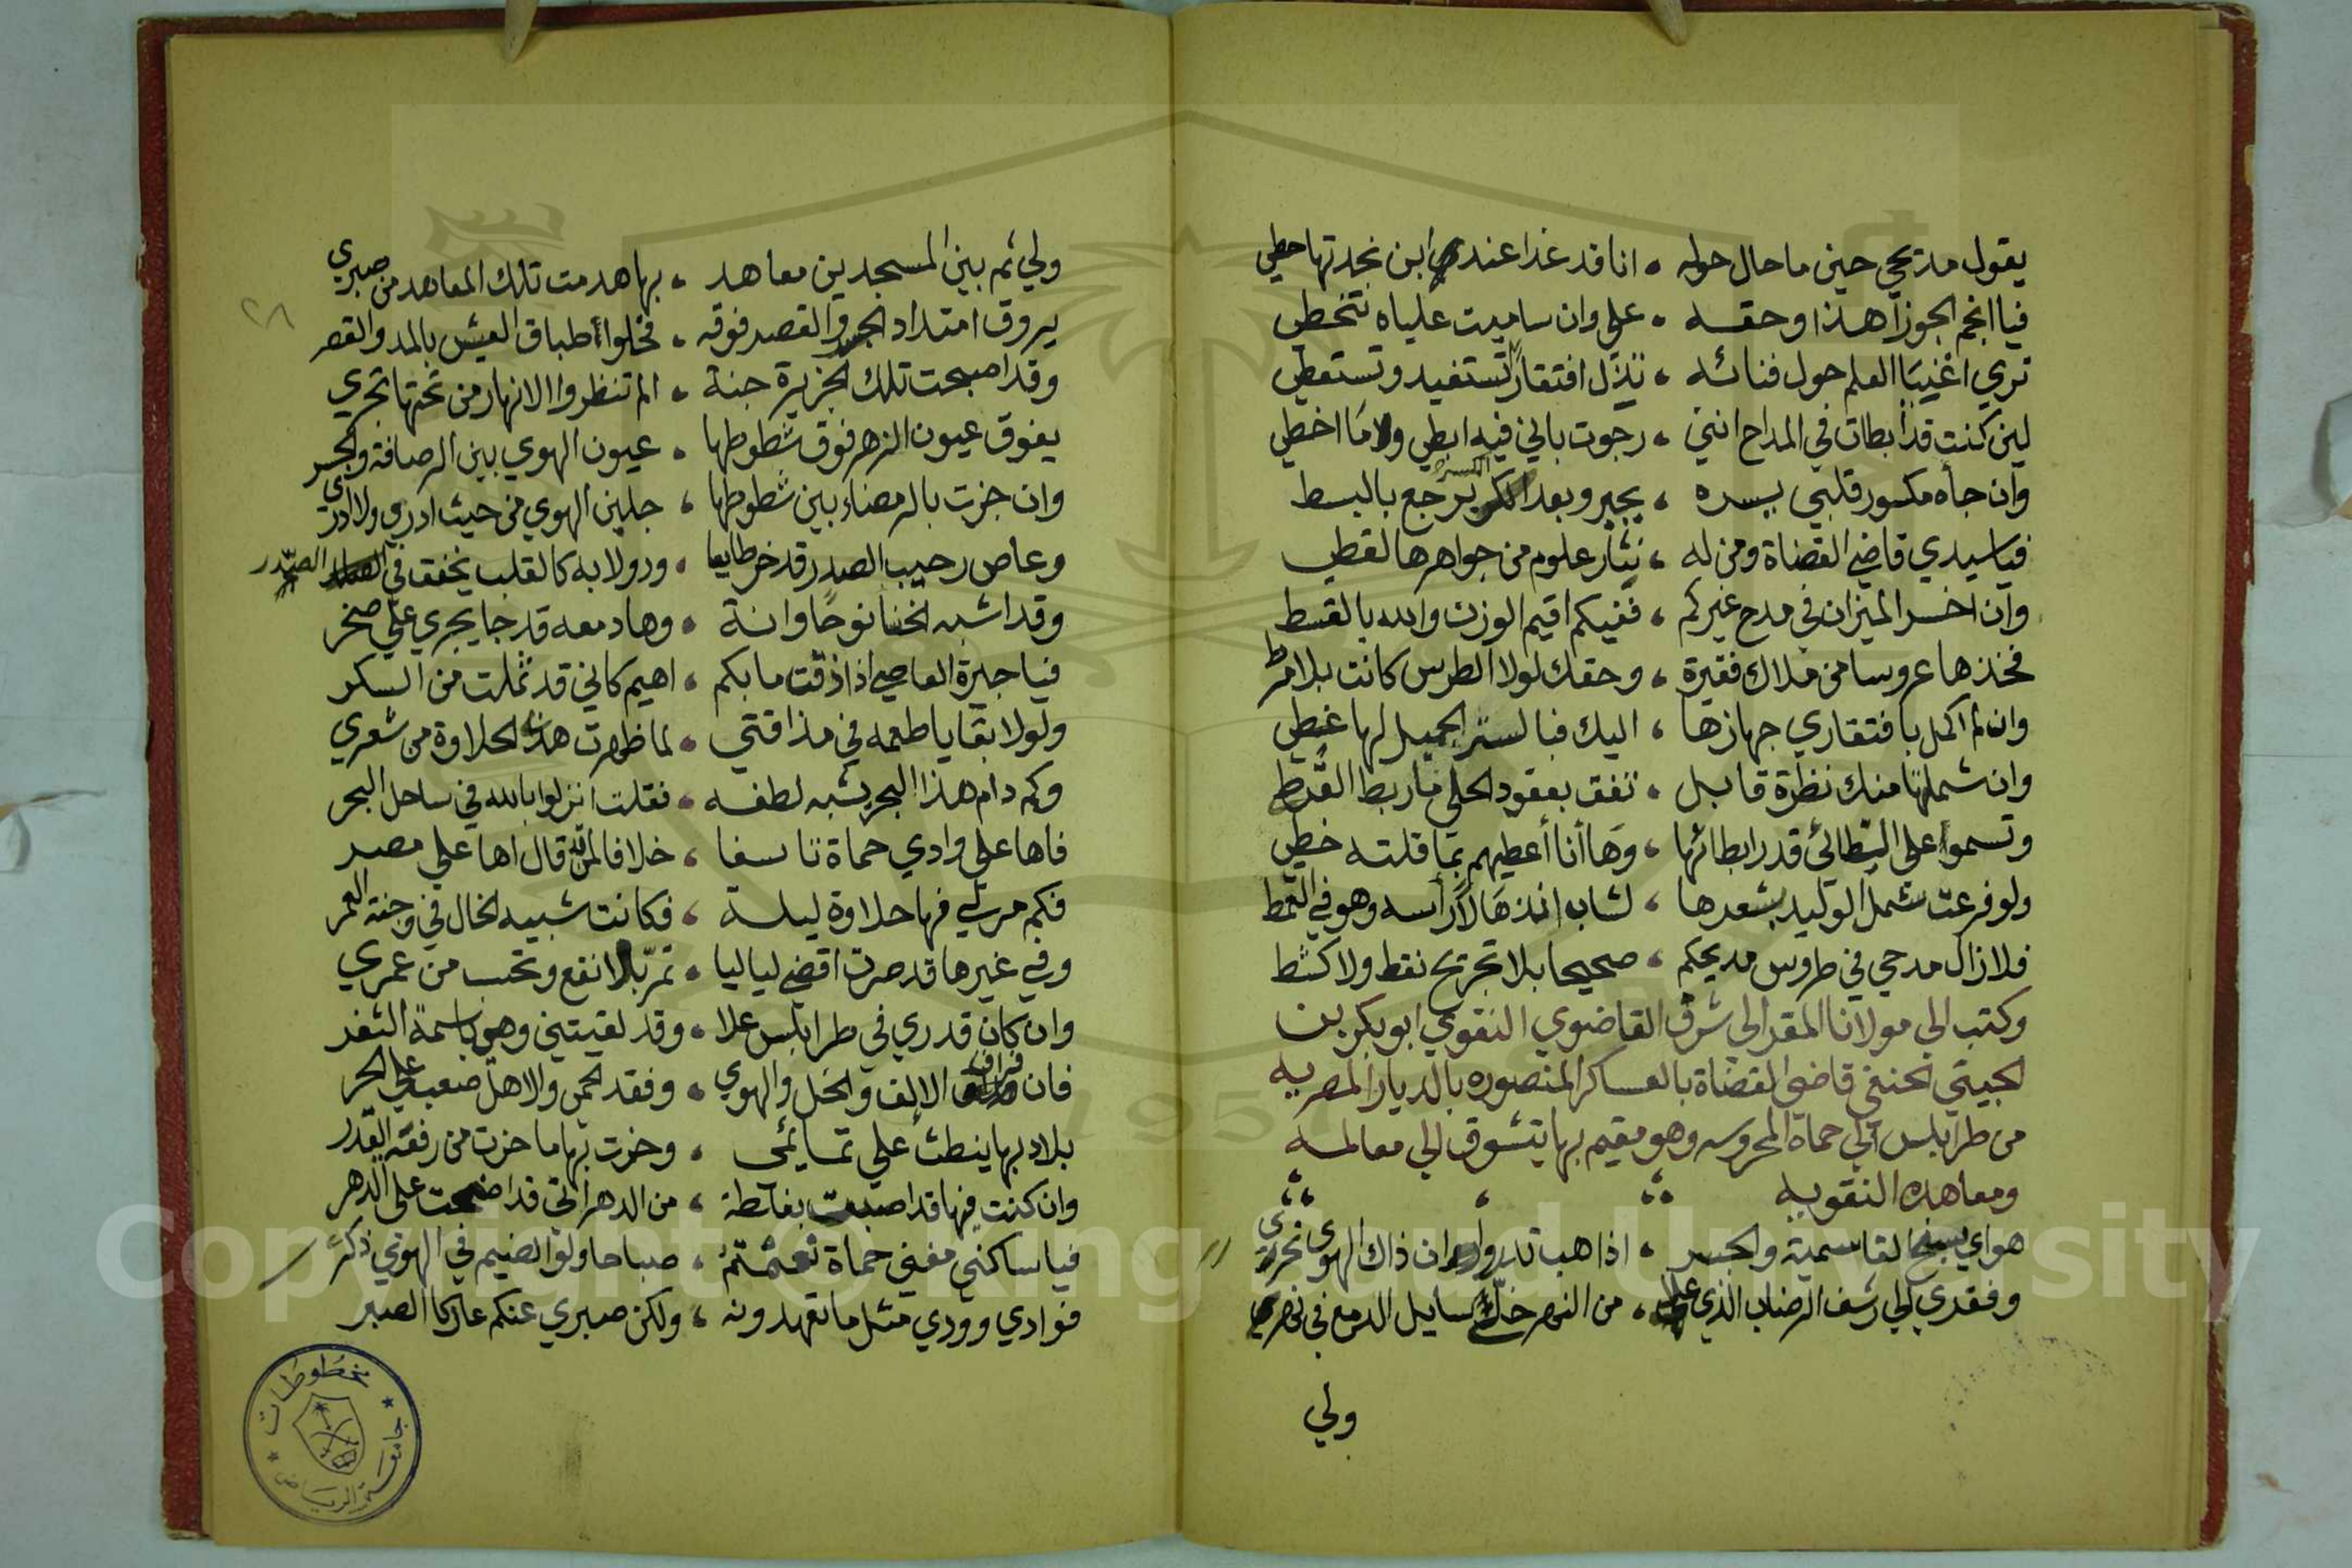 يقول مديحي حين ما حال حوله ، انا قد غدا عندي ابن بجدتها حطي
فيا انجم الجوزا هذا وحقه ، علي وان ساميت علياه تتخطي
تري اغنيا العلم حول فنائه ، تذل افتقارا تستفيد وتستعطي
لين كنت قد ابطات في المداح انني ، رجوت باني فيه ابطي ولا اخطي
وان جاه مكسور قلبي بسره ، يجبر وبعد الكسر يرجع بالبسط
فيا سيدي قاضي القضاة ومن له ، نثار علوم من جواهرها لقطي
وان اخسر الميزان في مدح غيركم ، ففيكم اقيم الوزن والله بالقسط
فخذها عروسا من ملاك فقيرة ، وحقك لولا الطرس كانت بلا مرط
وان لم اكمل بافتقاري جهازها ، اليك فبالستر الجميل لها غطي
وان شملتها منك نظرة قابل ، تفق بعقود الحلي ما ربط القرط
وتسموا على الطائي قدر ابطائها ، وها أنا أعطيهم بما قلته خطي
ولو فرعت شمل الوليد بشعرها ، لشاب اذا راسه وهو في القمط
فلا زال مدحي في طروس مديحكم ، صحيحا بلا تجريح نقط ولا كشط
وكتب الي مولانا المقر الى شرف القاضوي التقوي ابو بكر بن
الجيتي الحنفي قاضي القضاة بالعساكر المنصوره بالديار المصريه
من طرابلس الي حماة المحروسه وهو مقيم بها يتشوق الي معالمه
ومعاهده التقويه
هواي بسفح القاسمية والجسر ، اذا هب تدروا ان ذاك الهوي
وفقدي الي رشف الرضاب الذي ، من النهر خلي سايل الدمع في نهر
ولي
ولي ثم بين المسجدين معاهد ، بها هدمت تلك المعاهد من صبري
يروق امتداد الجسر والقصر فوقه ، فخلوا أطباق العيش بالمد والقصر
وقد اصبحت تلك الجزيرة جنة ، الم تنظروا الانهار من تحتها تجري
يفوق عيون الزهر فوق شطوطها ، عيون الهوي بين الرصافة والجسر
وان جزت بالرمضاء بين شطوطها ، جلبن الهوي من حيث ادري ولا ادري
وعاص رحيب الصدر قد خر طايعا ، ودولابه كالقلب يخفق في الصدر
وقد اشبه الخنسا نوحا وانة ، وها دمعه قد جا يجري علي صخر
فيا جيرة العاصي اذا ذقت ما بكم ، اهيم كاني قد ثملت من السكر
ولولا بقايا طعمه في مذاقتي ، لما ظهرت هذي الحلاوة من شعري
وكم دام هذا البحر يشبه لطفه ، فقلت انزلوا بالله في ساحل البحر
فاها علي وادي حماة تاسفا ، خلافا لمن قد قال اها علي مصر
فكم مر لي فيها حلاوة ليلة ، فكانت شبيه الخال في وجنة العمر
وفي غيرها قد صرت اقضي لياليا ، تمر بلا نفع وتحسب من عمري
وان كان قدري في طرابلس علا ، وقد لقيتني وهو باسمة الثغر
فان فراق الالف والخل والهوي ، وفقد الحمي والاهل صعب علي الحر
بلاد بها ينطت علي تمايمي ، وحزت بها ما حزت من رفعة القدر
وان كنت فيها قد اصبت بغلطة ، من الدهر اني قد اصحت على الدهر
فيا ساكني مغني حماة نعمتم ، صباحا ولو الضيم في الهوي ذكري
فوادي وودي مثل ما تعهدونه ، ولكن صبري عنكم عاد كالصبر
مخطوطات
جامعة الرياض
Copyright © King Saud University
1957